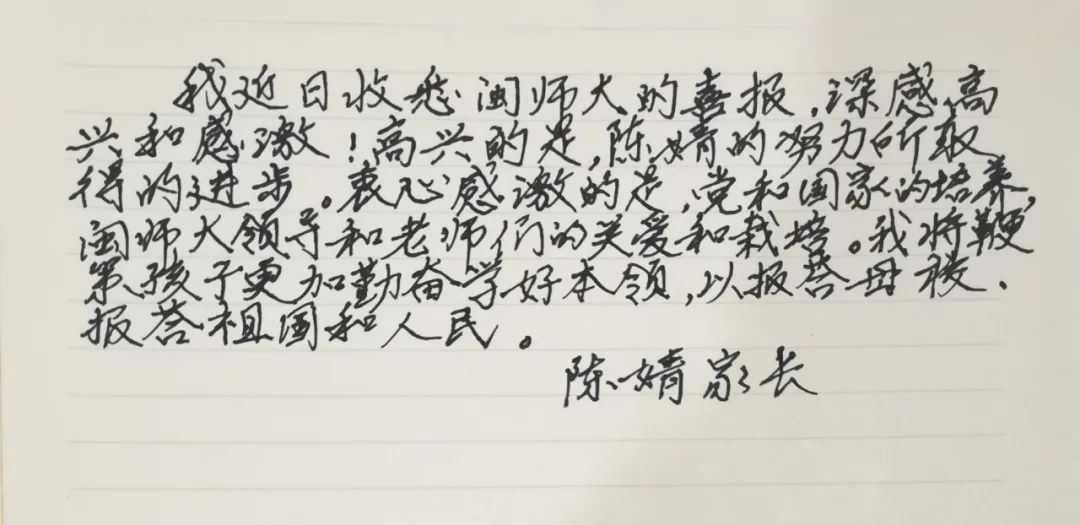 我近日收悉闽师大的喜报，深感高
兴和感激！高兴的是，陈婧的努力所取
得的进步。衷心感激的是，党和国家的培养，
闽师大领导和老师们的关爱和栽培。我将鞭
策孩子更加勤奋学好本领，以报答母校、
报答祖国和人民。
陈婧家长